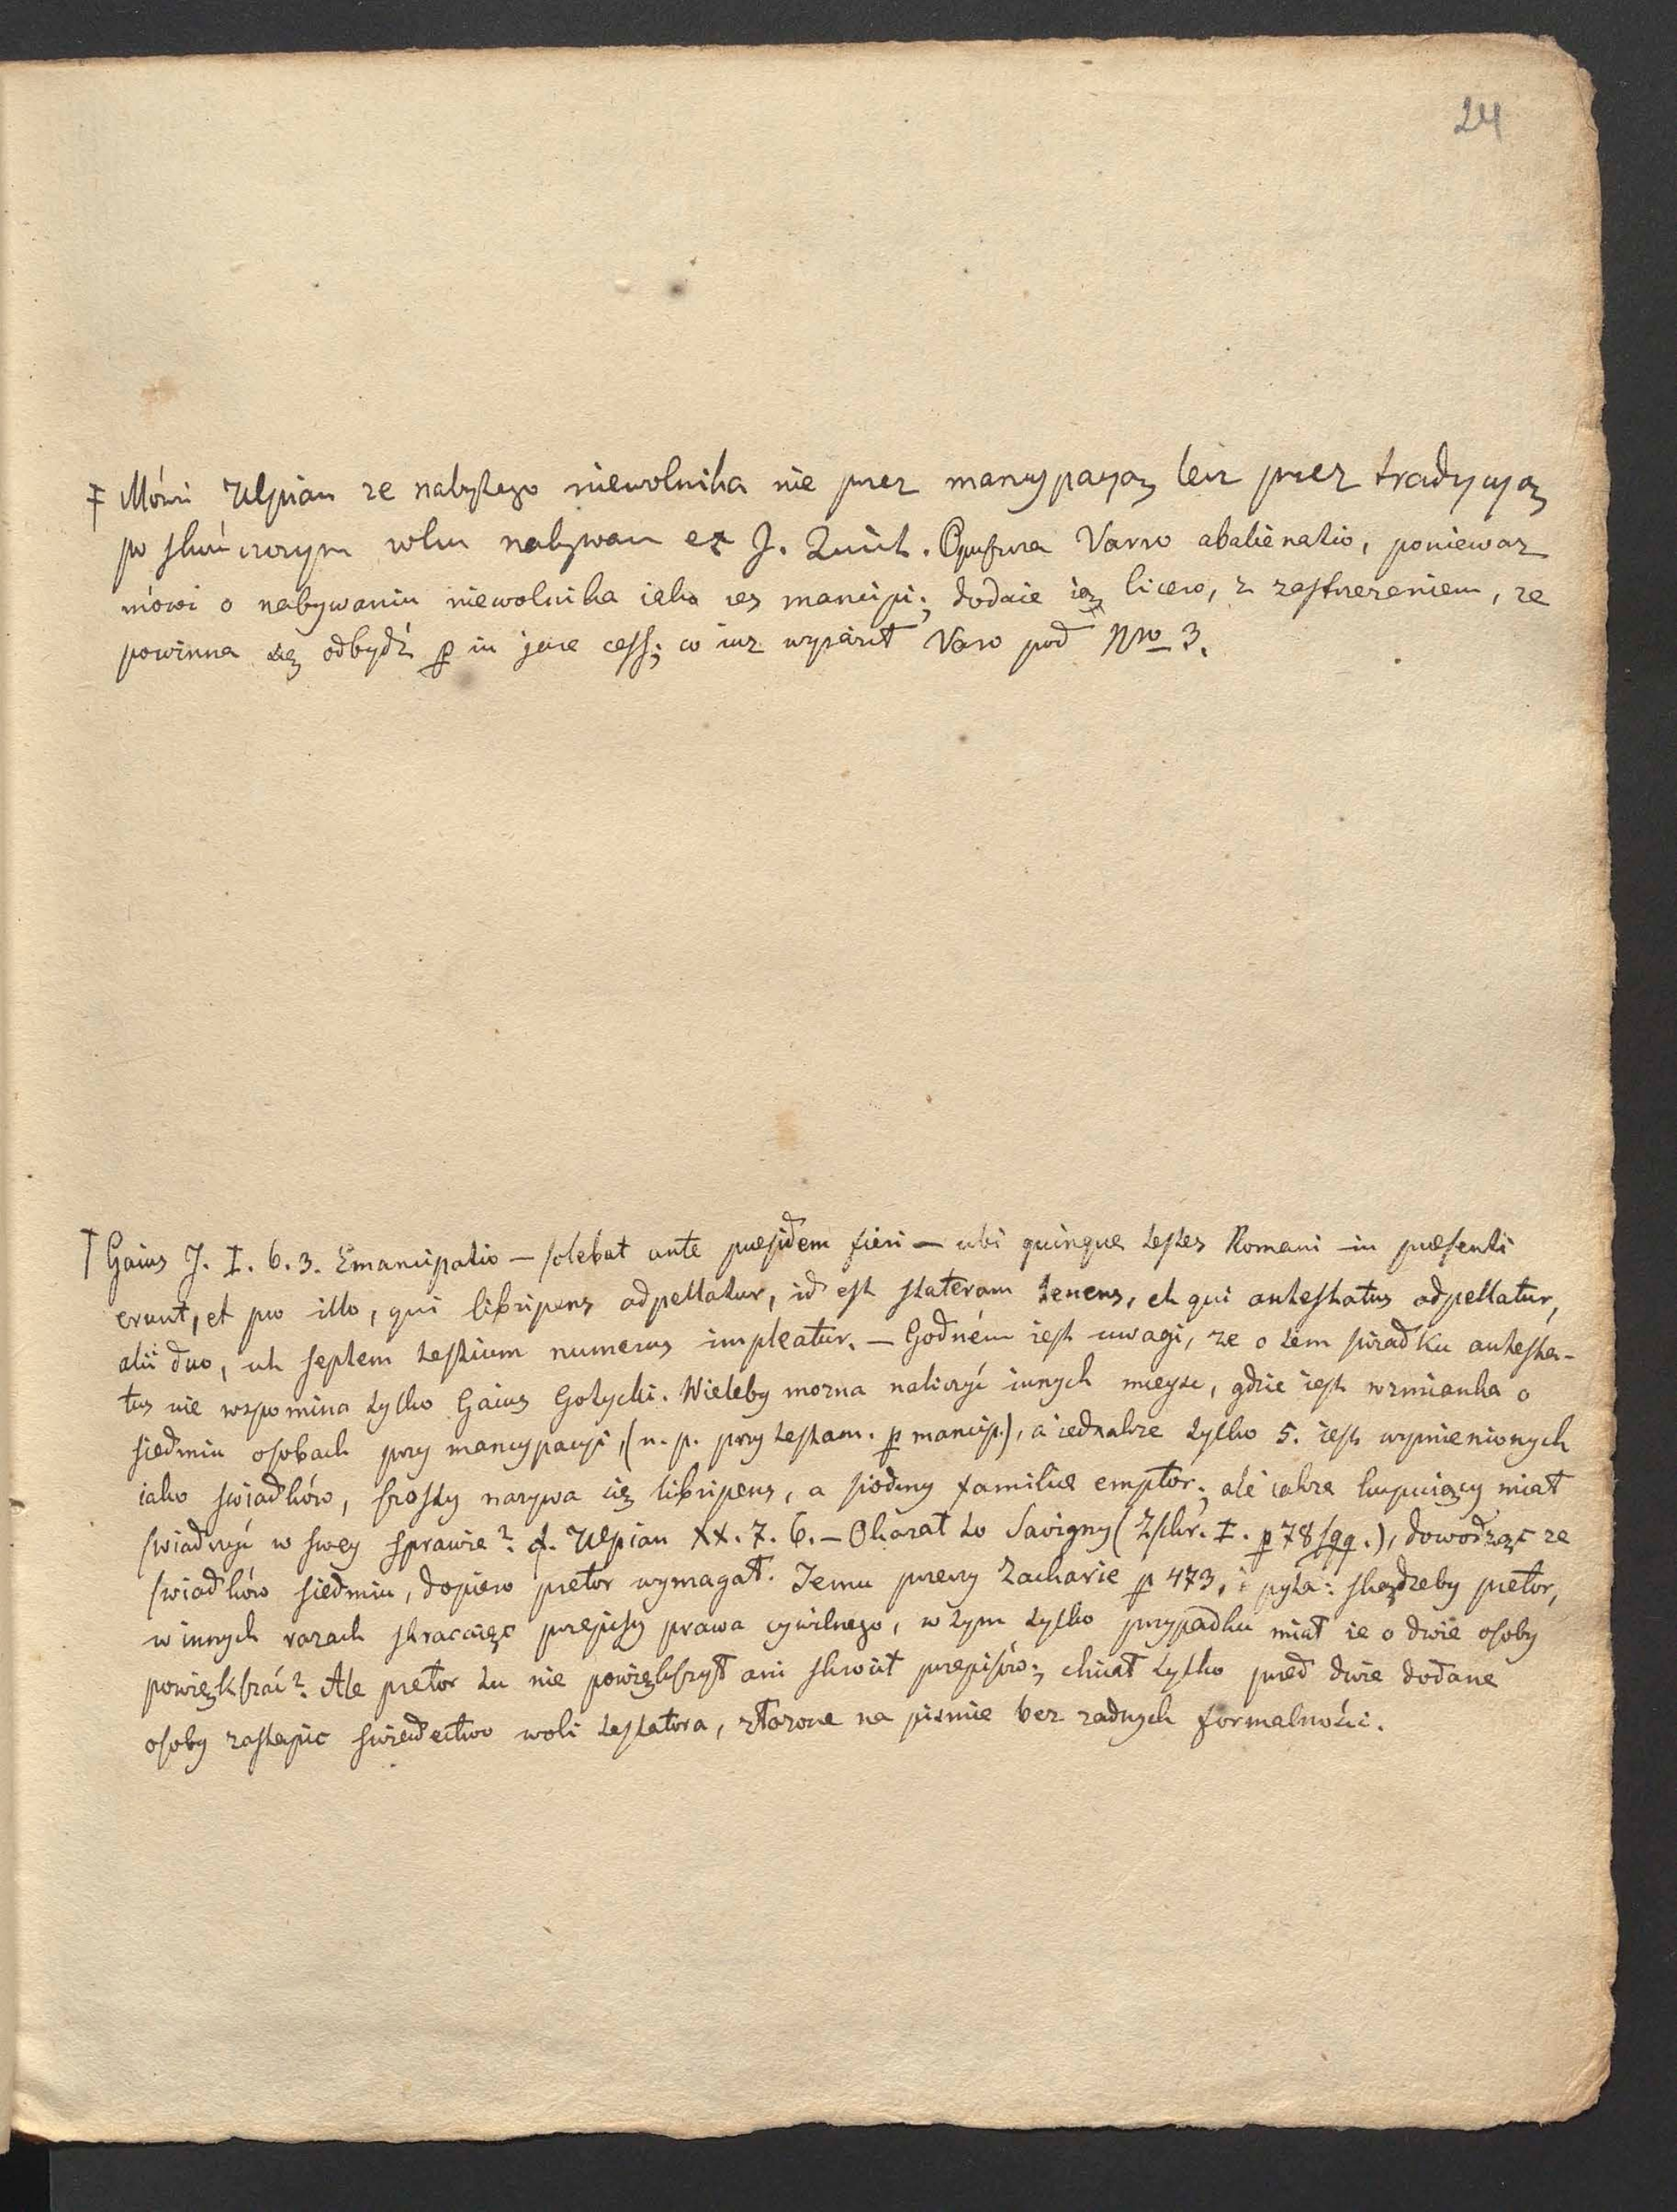 24
‡ Mówi Ulpian ze nabytego niewolnika nie przez mancypacyą lecz przez tradycyą
po skończonym roku nabywam ex J. Quirit. Opuszcza Varro abalienatio, poniewaz
mówi o nabywaniu niewolnika iako res mancipi; dodaie ią Cicero, z zastrzezeniem, ze
powinna się odbydź p in jure cess; co iuz wyraził Varo pod Nro 3.
† Gaius J. I. 6. 3. Emancipatio — solebat ante præsidem fieri — ubi quinque testes Romani in præsenti
erunt, et pro illo, qui libripens adpellatur, id est stateram tenens, et qui antestatus adpellatur,
alii duo, ut septem testium numerus impleatur. — Godném iest uwagi, ze o tem swiadku antesta-
tus nie wspomina tylko Gaius Gotycki. Wieleby mozna naliczyć innych mieysc, gdzie iest wzmianka o
siedmiu osobach przy mancypacyi, (n. p. przy testam. p mancip.), a iednakze tylko 5. iest wymienionych
iako swiadków, szosty nazywa się libripens, a siodmy familiæ emptor; ale iakze kupuiący miał
swiadczyć w swey sprawie? cf. Ulpian XX. 7. 6. — Okazał to Savigny (Zschr. I. p 78 sqq.), dowodząc ze
swiadków siedmiu, dopiero pretor wymagał. Temu przeczy Zacharie p 473, i pyta: skądzeby pretor,
w innych razach skracaiąc przepisy prawa cywilnego, w tym tylko przypadku miał ie o dwie osoby
powiększać? Ale pretor tu nie powiększył ani skrócił przepisów; chciał tylko przed dwie dodane
osoby zastąpic swiadectwo woli testatora, złozone na pismie bez zadnych formalności.